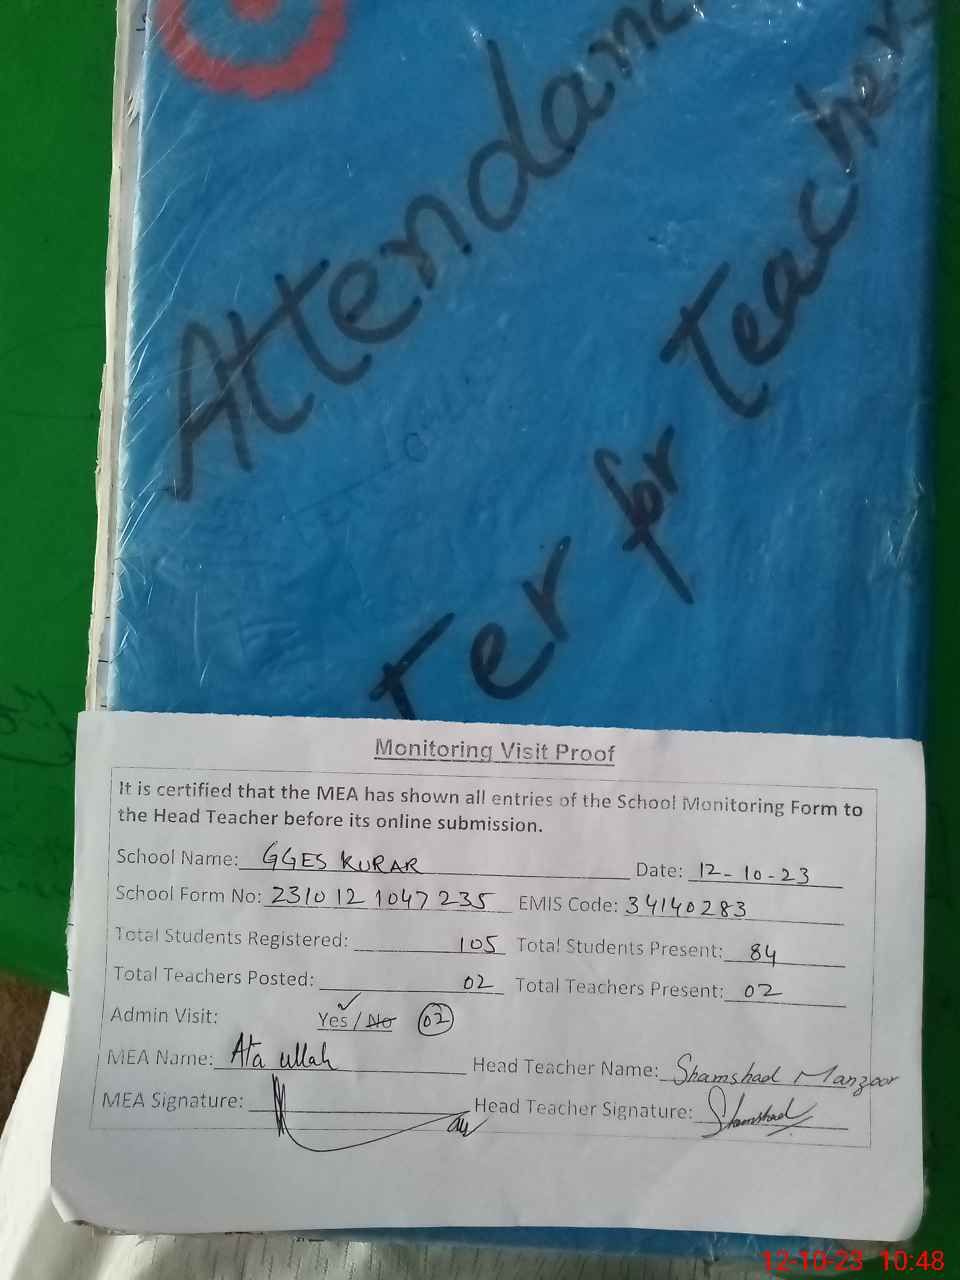 Attendanc
Ter for Teacher
Monitoring Visit Proof
It is certified that the MEA has shown all entries of the School Monitoring Form to
the Head Teacher before its online submission.
School Name: GGES KURAR Date: 12-10-23
School Form No: 2310 12 1047 235 EMIS Code: 34140283
Total Students Registered: 105 Total Students Present: 84
Total Teachers Posted: 02 Total Teachers Present: 02
Admin Visit: Yes / No 02
MEA Name: Ata ullah Head Teacher Name: Shamshad Manzoor
MEA Signature: Head Teacher Signature: Shamshad
12-10-23 10:48